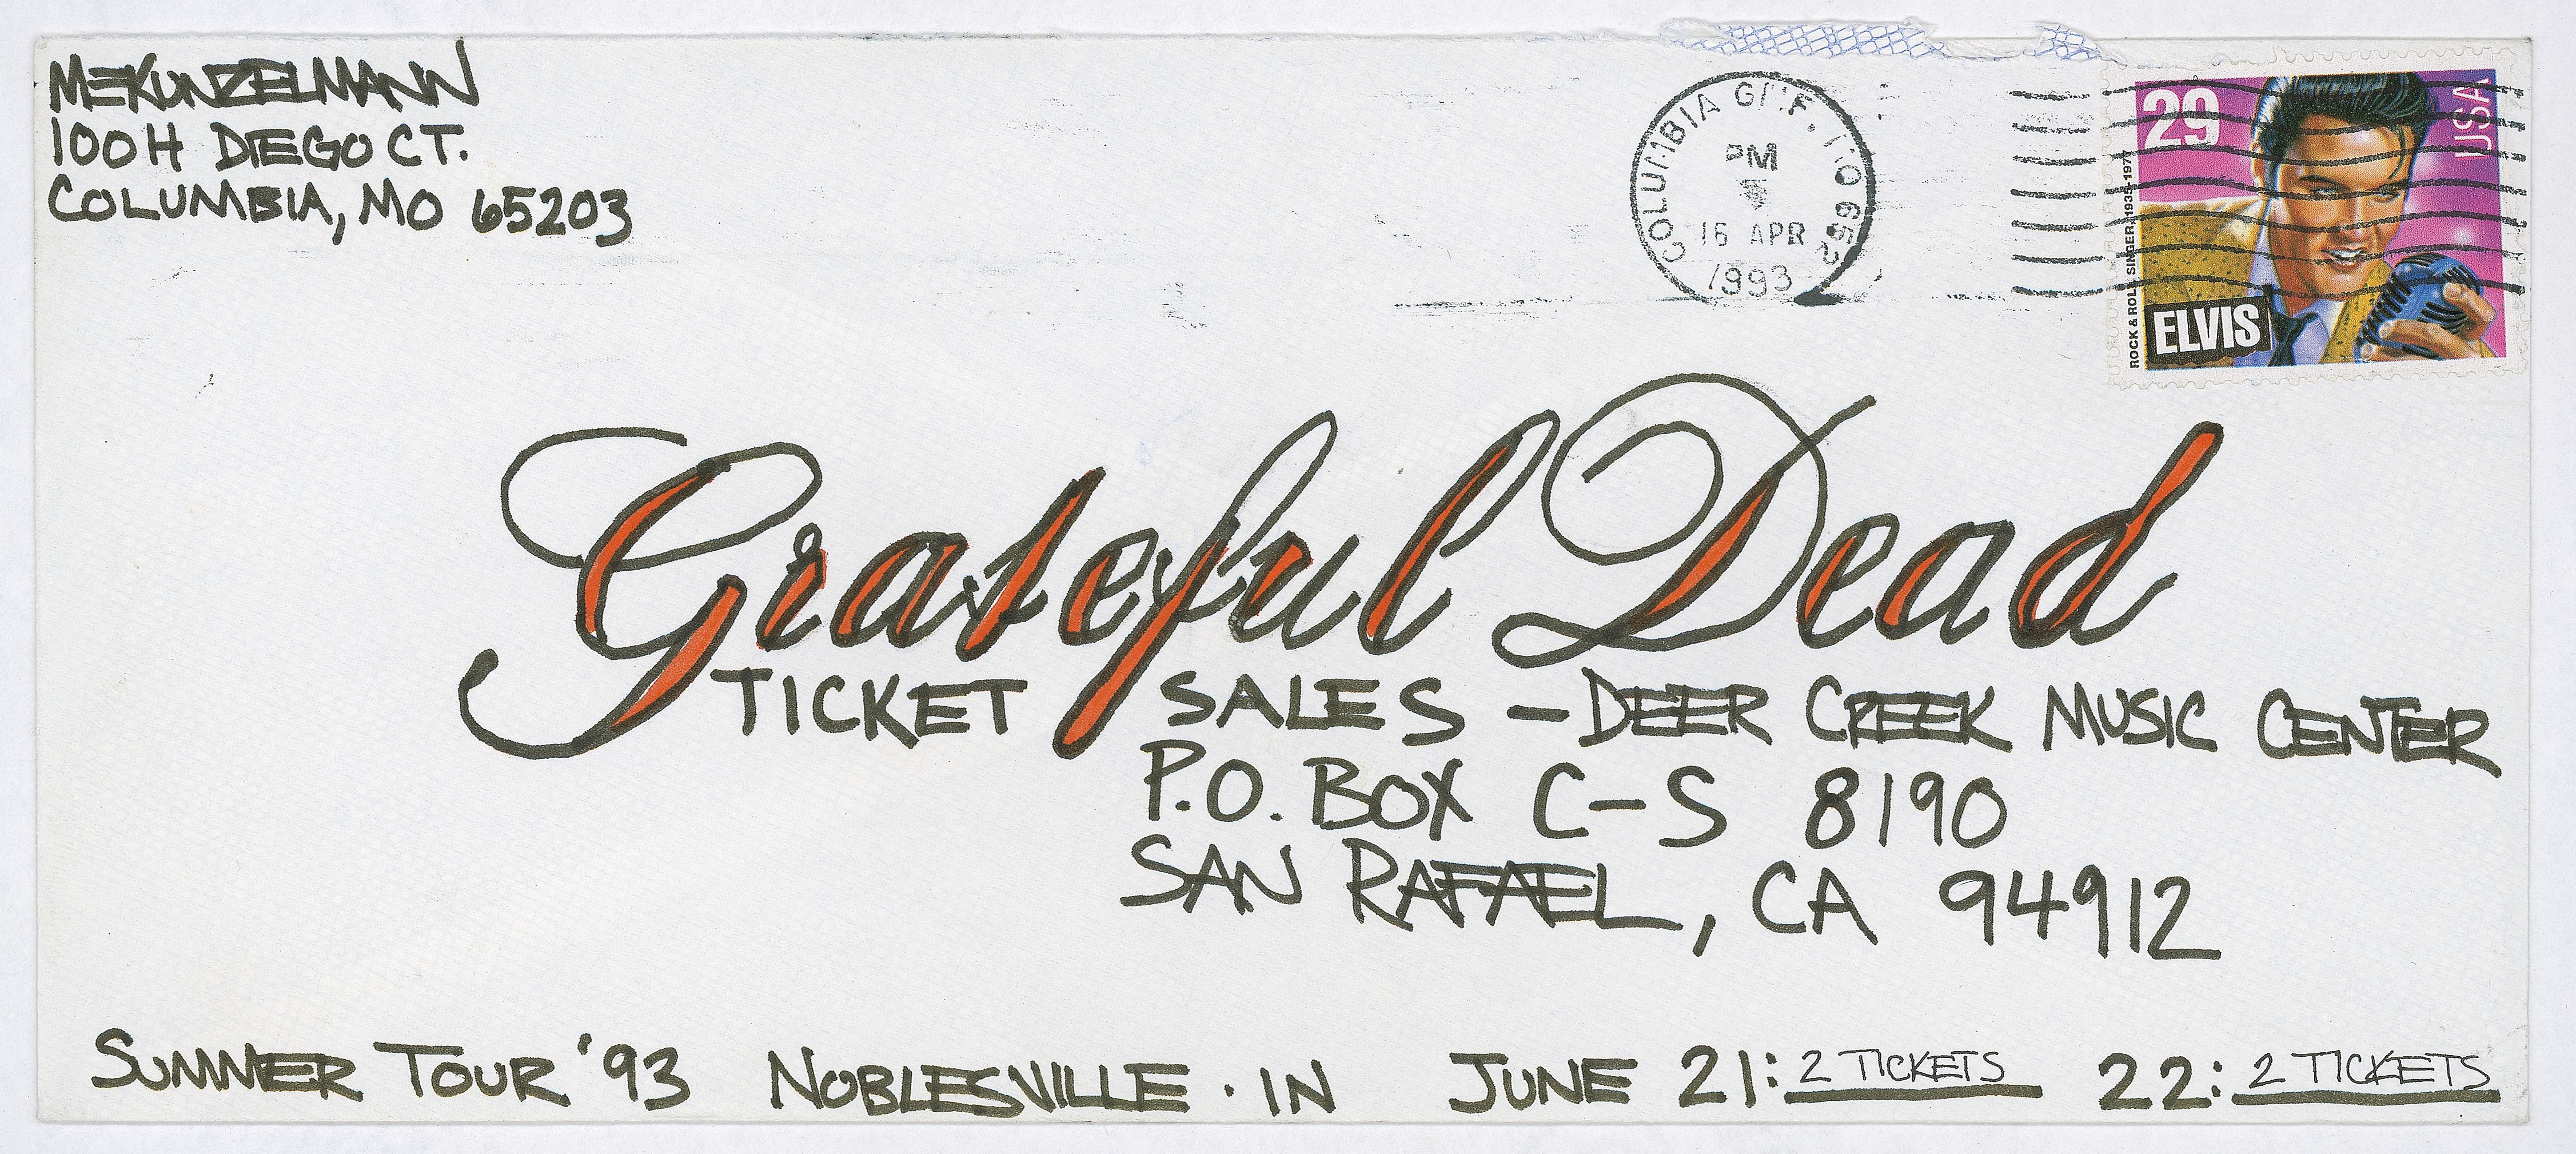 MEKUNZELMANN
100H DIEGO CT.
COLUMBIA, MO 65203
COLUMBIA G.M.F. MO 652
PM
16 APR
1993
29
USA
ROCK & ROLL SINGER, 1935-1977
ELVIS
Grateful Dead
TICKET SALES - DEER CREEK MUSIC CENTER
P.O. BOX C-S 8190
SAN RAFAEL, CA 94912
SUMMER TOUR '93 NOBLESVILLE · IN JUNE 21: 2 TICKETS 22: 2 TICKETS